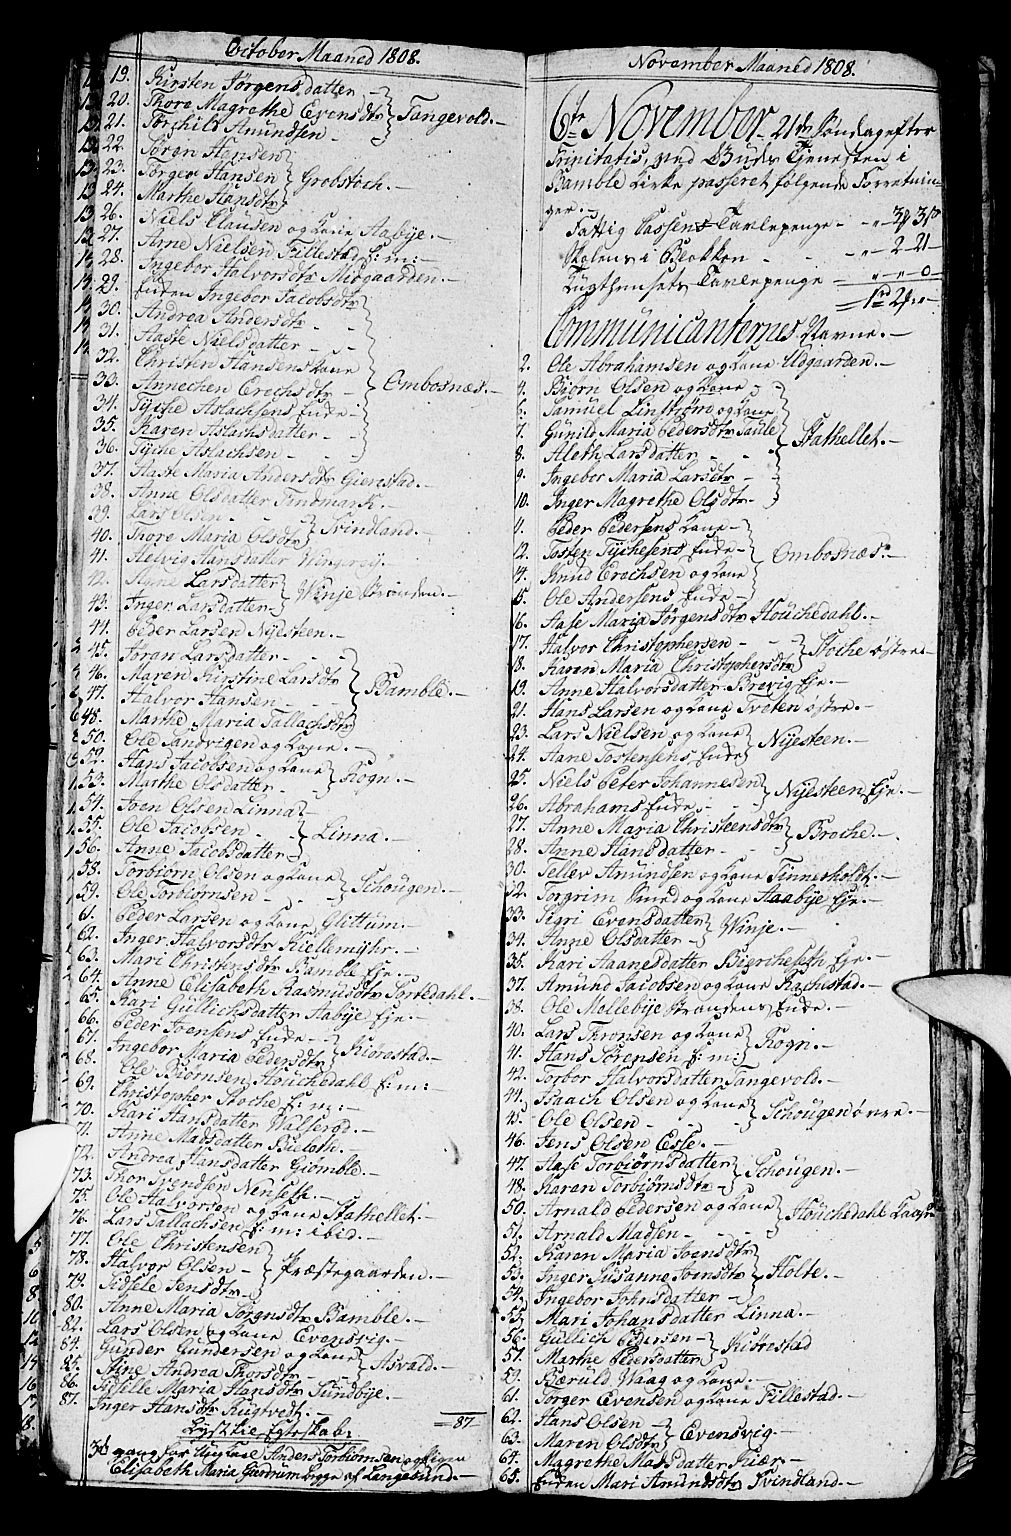 October Maaned 1808.
19. Kirsten Jörgensdatter -
20. Thore Magrethe Evensdtr Tangevold. -
21. Torchild Amundsen -
22. Søren Hansen
23. Jörgen Hansen Grobstoch. -
24. Marthe Hansdtr
26. Niels Clausen og Kone Aabye. -
27. Arne Nielsen Fillestad f: m: -
28. Ingebor Halvorsdtr Miogaarden. -
29. Enken Ingebor Jacobsdtr
30. Andrea Andersdtr -
31. Aaste Nielsdatter - -
32. Christen Hansens Kone
33. Annechen Erochsdtr - Ombosnæs. -
34. Tyche Aslachsens Enke -
35. Karen Aslachsdatter -
36. Tyche Aslachsen -
37. Aaste Maria Andersdtr Gienstad. -
38. Anne Olsdatter Findmark. -
39. Lars Olsen -
40. Thore Maria Olsdtr Tvindland. -
41. Helvig Hansdatter
42. Anne Larsdatter Winje Stranden. -
43. Inger Larsdatter -
44. Peder Larsen Nyesteen. -
45. Søran Larsdatter - -
46. Maren Kirstine Larsdtr
47. Halvor Hansen Bamble. -
48. Marthe Maria Tallachsdtr
50. Ole Sandvigen og Kone. -
52. Hans Jacobsen og Kone Rogn. -
53. Marthe Olsdatter -
54. Sven Olsen Linna -
55. Ole Jacobsen - Linna. -
56. Anne Jacobsdatter -
58. Torbiørn Olsen og Kone Schougen. -
59. Ole Torbiørnsen - -
61. Peder Larsen og Kone Glittum. -
62. Inger Halvorsdtr Kiellemyhr. -
63. Mari Christensdtr Bamble Eje. -
64. Anne Elisabeth Rasmusdtr Sortedahl. -
65. Kari Gullichsdatter Aabye Eje. -
66. Peder Svensens Enke -
67. Ingebor Maria Pedersdtr Kiørestad. -
68. Ole Biørnsen Houchedahl f: m: -
69. Christopher Stoche f: m: -
70. Kari Hansdatter Walberg. -
71. Anne Madsdatter Billeth. -
72. Andrea Hansdatter Giomble. -
73. Thor Svendsen Nenseth. -
75. Ole Halvorsen og Kone Stathellet. -
76. Lars Tallachsen f: m: ibid. -
77. Ole Christensen
78. Halvor Olsen - Præstegaarden. -
79. Sidsele Jensdtr
80. Anne Maria Sørensdtr Bamble. -
82. Lars Olsen og Kone Evensvig. -
84. Gunder Gundersen og Kone Asvald. -
85. Stine Andrea Thorsdtr -
86. Siselle Maria Hansdtr Sundbye. -
87. Inger Hansdtr Rugtvedt. -
87 -
Lyst til Egteskab:
3de gang for Ungkarl Anders Torbiørnsen og Pigen
Elisabeth Maria Gunnum begge af Langesund. -
November Maaned 1808.
6te November. 21de Søndag efter
Trinitatis, ved Guds Tjenesten i
Bamble Kirke passeret følgende Forretnin-
ger. -
Fattig Cassens Tavlepenge - - "
Skolens i Blokken - - - " - 2 - 21 -
Tugthusets Tavlepenge - " - " - 0 -
Communicanternes Navne. -
2. Ole Abrahamsen og Kone Udgaarden. -
4. Biørn Olsen og Kone -
6. Samuel Linstrøm og Kone
7. Gunild Maria Pedersdtr Taule
8. Aleth Larsdatter - - - Stathellet. -
9. Ingebor Maria Larsdtr -
10. Inger Magrethe Olsdtr -
Peder Pedersens Kone -
12. Tosten Tychesens Enke - Ombosnæs. -
Knud Erochsen og Kone
15. Ole Andersens Enke -
16. Aase Maria Jörgensdtr Houchedahl. -
17. Halvor Christophersen - - Stoche østre. -
18. Karen Maria Christophersdtr
19. Anne Halvorsdatter Brevig Eje. -
21. Hans Larsen og Kone Tveten østre. -
23. Lars Nielsen og Kone Nyesteen. -
24. Anne Tostensens Enke
25. Niels Peter Johannesen Nyesteen Eje. -
26. Abrahams Enke - -
27. Anne Maria Christensdtr Broche. -
28. Anne Hansdatter - -
30. Tellev Amundsen og Kone Tinnerholt. -
32. Torgrim Smed og Kone Aabye Eje. -
33. Sigri Evensdatter Winje. -
34. Anne Olsdatter -
35. Kari Aanesdatter Biercheseth Eje. -
37. Amund Jacobsen og Kone Rachestad. -
38. Ole Mollebye Strandens Enke. -
40. Lars Thronsen og Kone Rogn. -
41. Hans Sørensen f: m:
42. Torbor Halvorsdatter Tangevold. -
44. Isaach Olsen og Kone Schougen øvre. -
45. Ole Olsen - - -
46. Jens Olsen Esle. -
47. Aase Torbiørnsdatter Schougen. -
48. Karen Torbiørnsdtr -
50. Arnold Pedersen og Kone Houchedahl
51. Arnold Madsen - -
52. Karen Maria Svensdtr
53. Inger Susanne Svensdtr Holte. -
54. Ingebor Johnsdatter -
55. Mari Johansdatter Linna. -
56. Gullich Pedersen - Kiørestad
57. Marthe Pedersdatter
59. Bæruld Waag og Kone. -
61. Torger Evensen og Kone Fillestad. -
62. Hans Olsen - Evensvig. -
63. Maren Olsdtr
64. Magrethe Madsdatter Kiær. -
65. Enken Mari Amundsdtr Tvindland. -